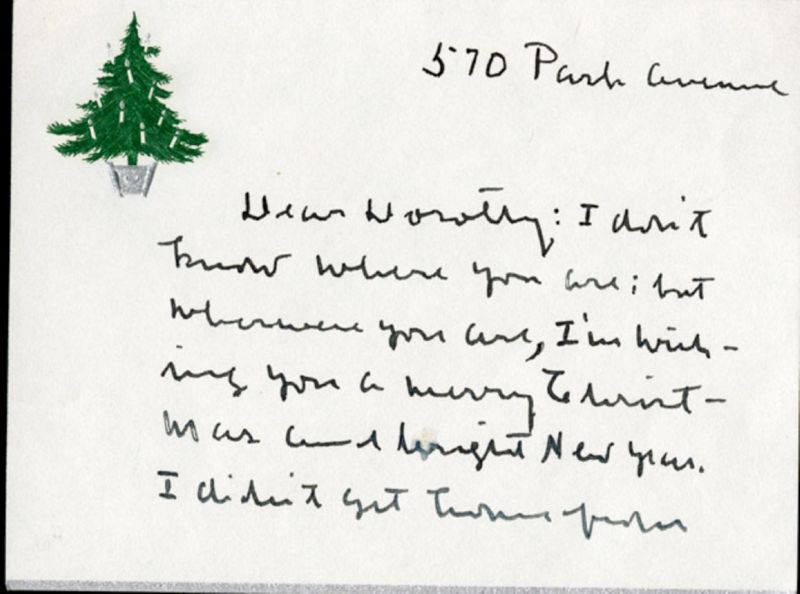 570 Park Avenue
Dear Dorothy: I don't
know where you are; but
wherever you are, I'm wish-
ing you a merry Christ-
mas and bright New Year.
I didn't get home from